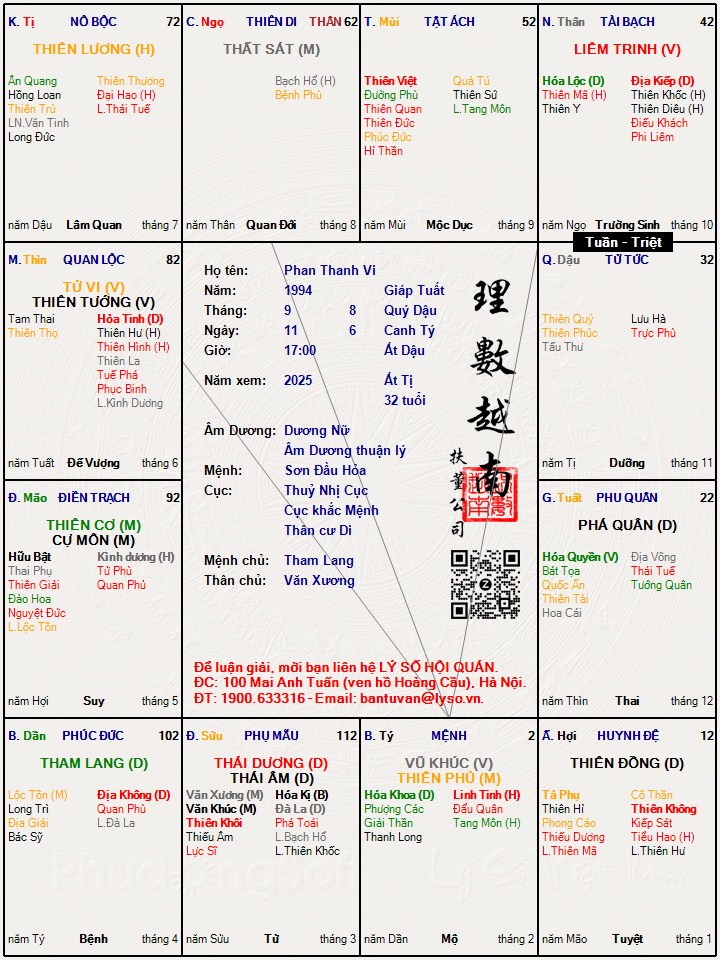 K. Tị NÔ BỘC 72
THIÊN LƯƠNG (H)
Ân Quang Thiên Thương
Hồng Loan Đại Hao (H)
Thiên Trù L.Thái Tuế
LN.Văn Tinh
Long Đức
năm Dậu Lâm Quan tháng 7
C. Ngọ THIÊN DI THÂN 62
THẤT SÁT (M)
Bạch Hổ (H)
Bệnh Phù
năm Thân Quan Đới tháng 8
T. Mùi TẬT ÁCH 52
Thiên Việt Quả Tú
Đường Phù Thiên Sứ
Thiên Quan L.Tang Môn
Thiên Đức
Phúc Đức
Hỉ Thần
năm Mùi Mộc Dục tháng 9
N. Thân TÀI BẠCH 42
LIÊM TRINH (V)
Hóa Lộc (D) Địa Kiếp (D)
Thiên Mã (H) Thiên Khốc (H)
Thiên Y Thiên Diêu (H)
Điếu Khách
Phi Liêm
năm Ngọ Trường Sinh tháng 10
Tuần - Triệt
M. Thìn QUAN LỘC 82
TỬ VI (V)
THIÊN TƯỚNG (V)
Tam Thai Hỏa Tinh (D)
Thiên Thọ Thiên Hư (H)
Thiên Hình (H)
Thiên La
Tuế Phá
Phục Binh
L.Kình Dương
năm Tuất Đế Vượng tháng 6
Họ tên: Phan Thanh Vi
Năm: 1994 Giáp Tuất
Tháng: 9 8 Quý Dậu
Ngày: 11 6 Canh Tý
Giờ: 17:00 Ất Dậu
Năm xem: 2025 Ất Tị
32 tuổi
Âm Dương: Dương Nữ
Âm Dương thuận lý
Mệnh: Sơn Đầu Hỏa
Cục: Thuỷ Nhị Cục
Cục khắc Mệnh
Thân cư Di
Mệnh chủ: Tham Lang
Thân chủ: Văn Xương
理數越南
扶董公司
Để luận giải, mời bạn liên hệ LÝ SỐ HỘI QUÁN.
ĐC: 100 Mai Anh Tuấn (ven hồ Hoàng Cầu), Hà Nội.
ĐT: 1900.633316 - Email: bantuvan@lyso.vn.
Q. Dậu TỬ TỨC 32
Thiên Quý Lưu Hà
Thiên Phúc Trực Phù
Tấu Thư
năm Tị Dưỡng tháng 11
Đ. Mão ĐIỀN TRẠCH 92
THIÊN CƠ (M)
CỰ MÔN (M)
Hữu Bật Kình dương (H)
Thai Phụ Tử Phù
Thiên Giải Quan Phủ
Đào Hoa
Nguyệt Đức
L.Lộc Tồn
năm Hợi Suy tháng 5
G. Tuất PHU QUÂN 22
PHÁ QUÂN (D)
Hóa Quyền (V) Địa Võng
Bát Tọa Thái Tuế
Quốc Ấn Tướng Quân
Thiên Tài
Hoa Cái
năm Thìn Thai tháng 12
B. Dần PHÚC ĐỨC 102
THAM LANG (D)
Lộc Tồn (M) Địa Không (D)
Long Trì Quan Phù
Địa Giải L.Đà La
Bác Sỹ
năm Tý Bệnh tháng 4
Đ. Sửu PHỤ MẪU 112
THÁI DƯƠNG (D)
THÁI ÂM (D)
Văn Xương (M) Hóa Kị (B)
Văn Khúc (M) Đà La (D)
Thiên Khôi Phá Toái
Thiếu Âm L.Bạch Hổ
Lực Sĩ L.Thiên Khốc
năm Sửu Tử tháng 3
B. Tý MỆNH 2
VŨ KHÚC (V)
THIÊN PHỦ (M)
Hóa Khoa (D) Linh Tinh (H)
Phượng Các Đẩu Quân
Giải Thần Tang Môn (H)
Thanh Long
năm Dần Mộ tháng 2
Ấ. Hợi HUYNH ĐỆ 12
THIÊN ĐỒNG (D)
Tả Phụ Cô Thần
Thiên Hỉ Thiên Không
Phong Cáo Kiếp Sát
Thiếu Dương Tiểu Hao (H)
L.Thiên Mã L.Thiên Hư
năm Mão Tuyệt tháng 1